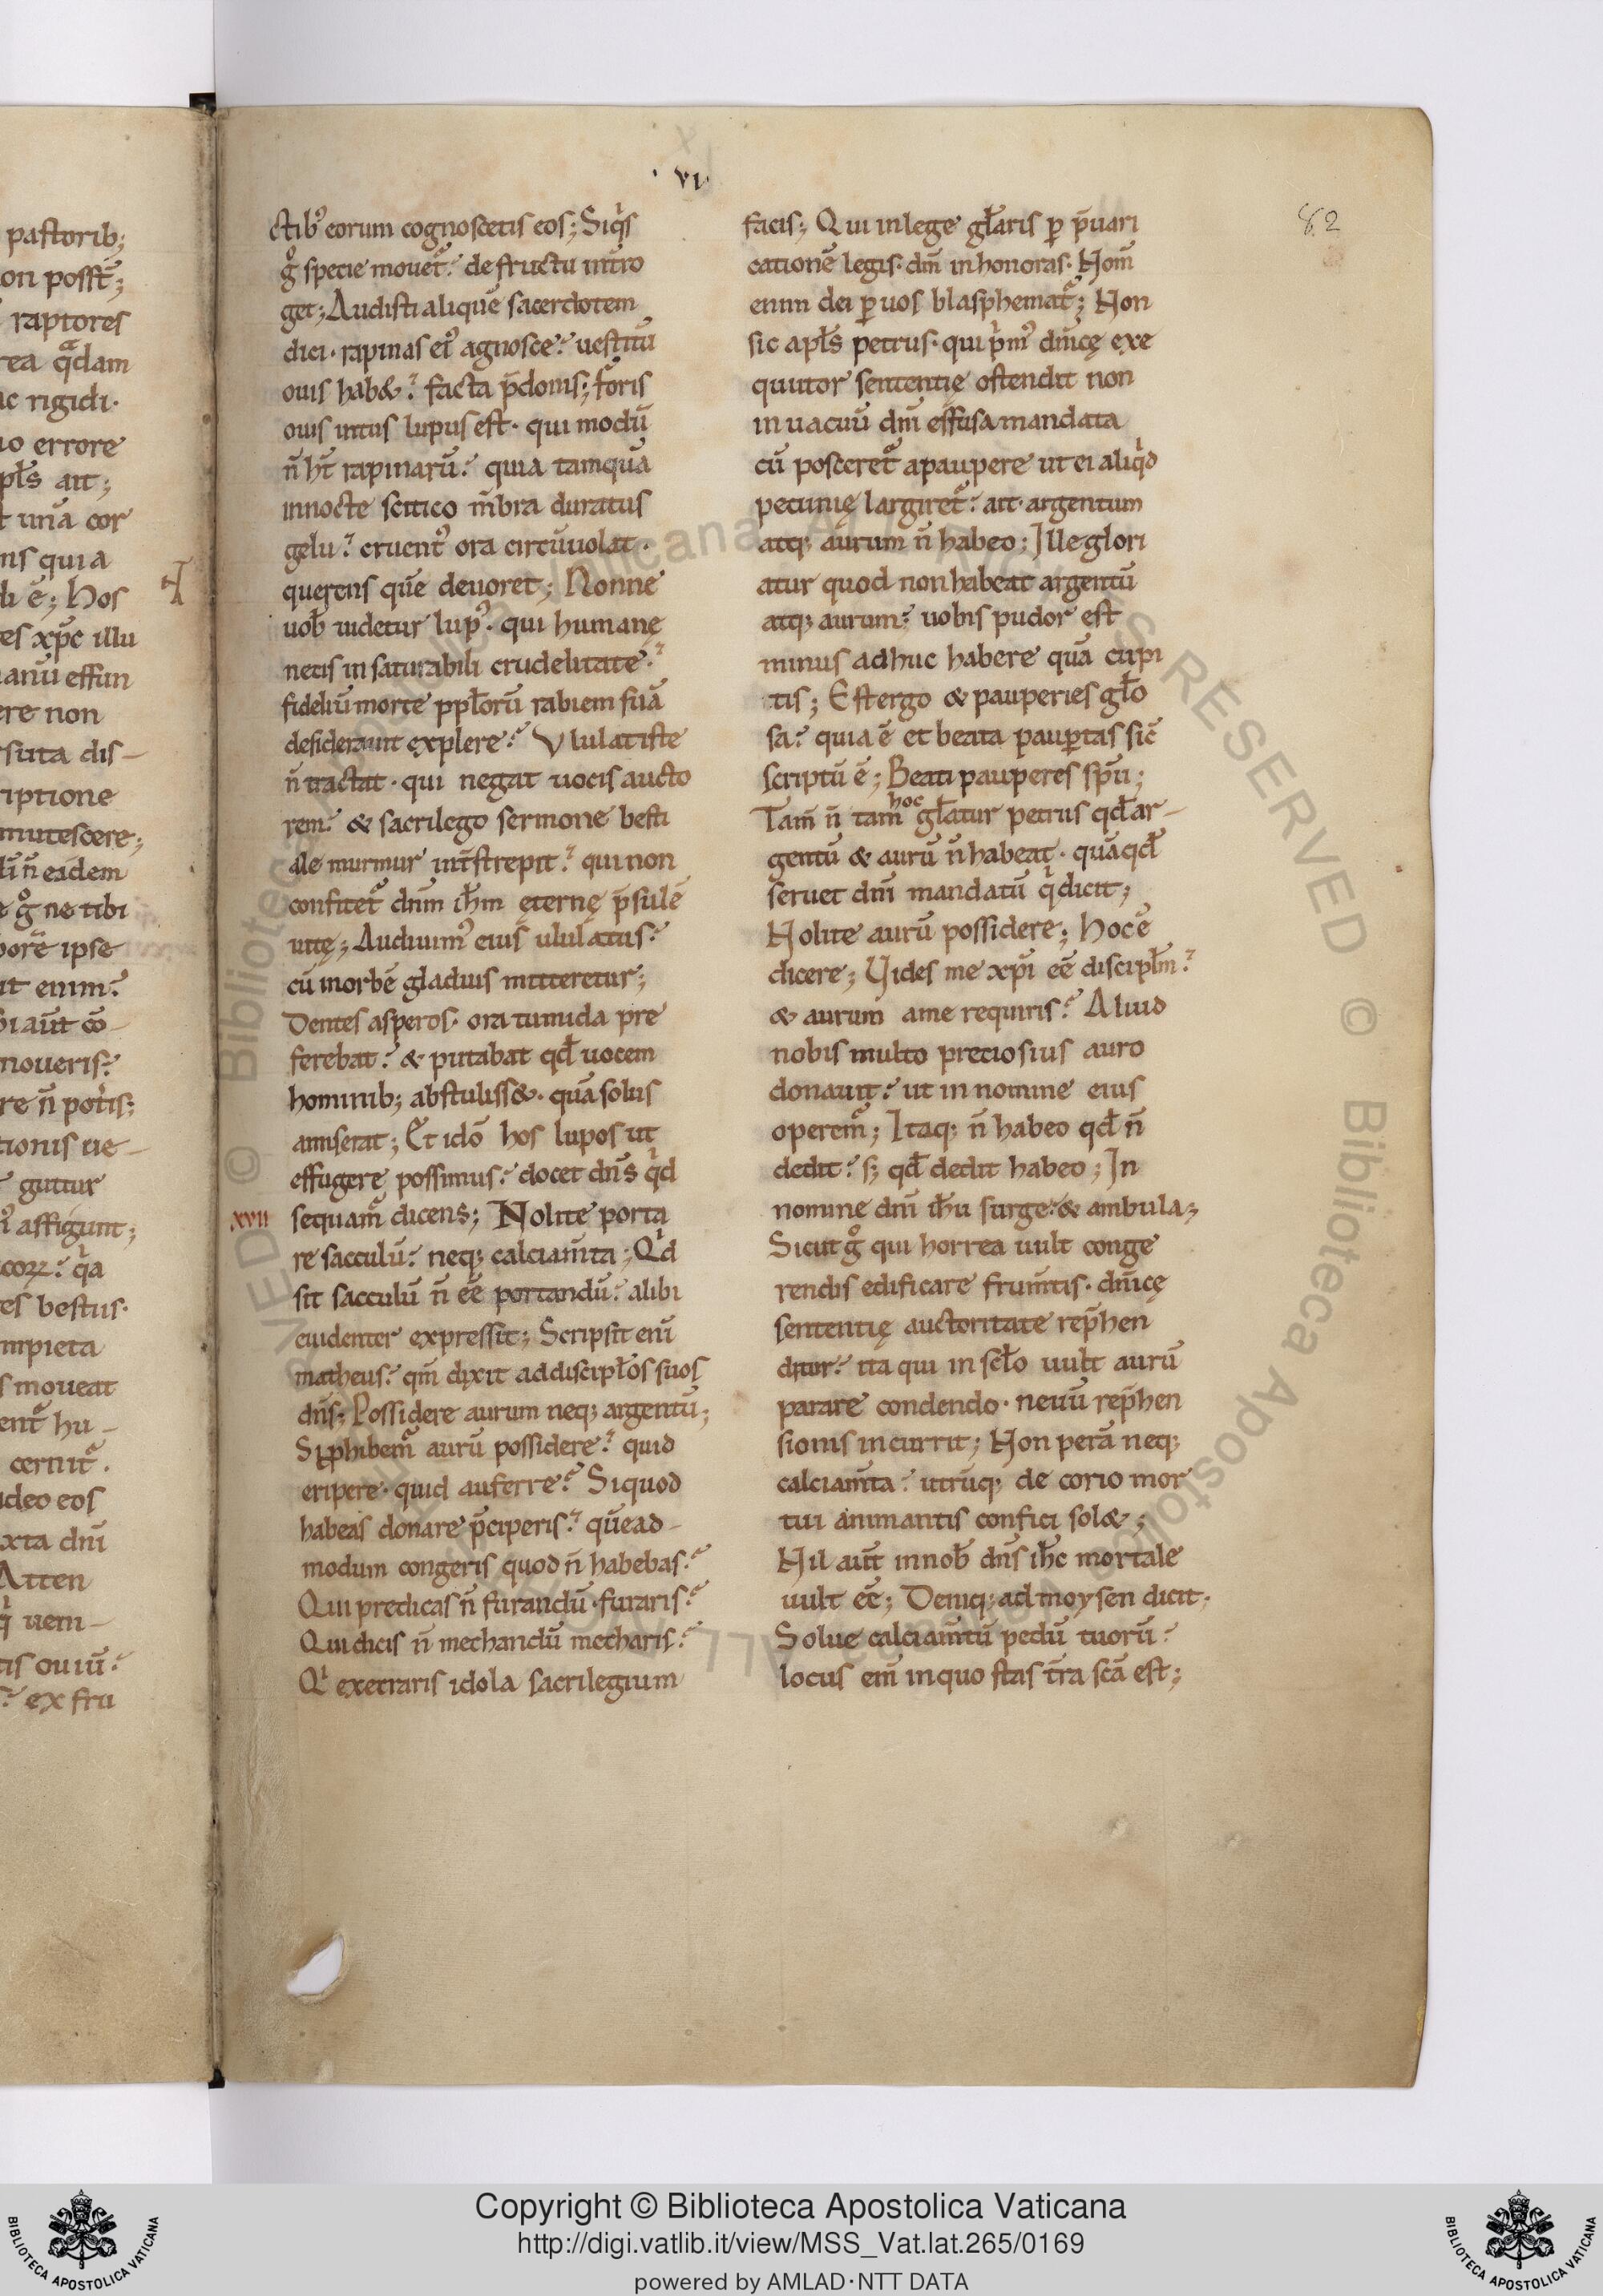 pastorib;
on posst̄;
raptores
rea q̄dam
ac rigidi·
uo errore
pɫs ait;
t una cor
ns quia
li ē; hos
es xp̄c illu
anū effun
ere non
suta dis-
riptione
mutescere;
e gͦ ne tibi
porē ipse
it enim?
noueris?
re n̄ potis;
tionis ue-
guttur
affigunt;
es bestiis·
mpieta
s moueat
hu-
cernit᷒·
ideo eos
xta dn̄i
Atten
uem-
tis ouiū?
? ex fru
·vi·
82
ctib᷒ eorum cognoscetis eos; Siq̇s
gͦ specie mouet᷒? de fructu int̄ro
get; Audisti aliquē sacerdotem
dici· rapinas ei᷒ agnosce? uestitū
ouis hab&? facta p̄donis; foris
ouis intus lupus est· qui modū
n̄ ht̄ rapinarū? quia tamquā
innocte scitico m̄bra duratus
gelu? cruent᷒ ora circūuolat·
querens quē deuoret; Nonne
uob̄ uidetur lup᷒· qui humanę
necis insaturabili crudelitate?
fideliū morte ppɫorū rabiem suā
desiderant explere? Vlulat iste
n̄ tractat· qui negat uocis aucto
rem? & sacrilego sermone besti
ale murmur int̄strepit? qui non
confitet᷒ dn̄m ih̄m ęternę p̄sulē
uitę; Audiuim᷒ eius ululatus?
cū inorbē gladius mitteretur;
Dentes asperos· ora tumida pre
ferebat? & putabat qđ uocem
hominib; abstuliss&· quā solus
amiserat; Et idō hos lupos ut
effugere possimus? docet dn̄s q̇d
xvii
sequam᷒ dicens; Nolite porta
re sacculū? neq; calciam̄ta; Q̇d
sit sacculū n̄ eē portandū? alibi
euidenter expressit; Scripsit enī
matheus? qm̄ dixit addiscipɫos suos
dn̄s; Possidere aurum neq; argentū;
Si ꝓhibem᷒ aurū possidere? quid
eripere· quid auferre? Siquod
habeas donare p̄ciperis? quēad-
modum congeris quod n̄ habebas?
Qui predicas n̄ furandū· furaris?
Qui dicis n̄ mechandū mecharis?
Q̇ execraris idola sacrilegium
facis; Qui inlege gɫaris ꝑ p̄uari
cationē legis· dm̄ inhonoras· Nom̄
enim dei ꝑ uos blasphemat᷒; Non
sic apɫs petrus· qui ṗm᷒ dn̄icę exe
quutor sententię ostendit non
in uacuū dm̄ effusa mandata
cū posceret᷒ apaupere ut ei aliq̇d
pecunię largiret᷒? ait· argentum
atq; aurum n̄ habeo; Ille glori
atur quod non habeat argentū
atq; aurum? uobis pudor est
minus adhuc habere quā cupi
tis; Est ergo & pauperies gɫo
sa? quia ē et beata pauꝑtas sic̄
scriptū ē; Beati pauperes sp̄u;
hoc
Tam̄ n̄ tam gɫatur petrus qđ ar-
gentū & aurū n̄ habeat· quā qđ
seruet dn̄i mandatū q̇ dicit;
Nolite aurū possidere; hoc ē
dicere; Vides me xp̄i eē discipɫm?
& aurum ame requiris? Aliud
nobis multo preciosius auro
donauit? ut in nomine eius
operem᷒; Itaq; n̄ habeo qđ n̄
dedit? s; qđ dedit habeo; In
nomine dn̄i ih̄u surge? & ambula;
Sicut gͦ qui horrea uult conge
rendis edificare frum̄tis· dn̄icę
sententię auctoritate rep̄hen
ditur? ita qui in scɫo uult aurū
parare condendo· neuū rep̄hen
sionis incurrit; Non perā neq;
calciam̄ta? utrūq; de corio mor
tui animantis confici sol&;
Nil aūt innob̄ dn̄s ih̄c mortale
uult eē; Deniq; ad moysen dicit;
Solue calciam̄tū pedū tuorū?
locus em̄ inquo stas t̄ra scā est;
Copyright © Biblioteca Apostolica Vaticana
http://digi.vatlib.it/view/MSS_Vat.lat.265/0169
powered by AMLAD·NTT DATA
BIBLIOTECA APOSTOLICA VATICANA
BIBLIOTECA APOSTOLICA VATICANA